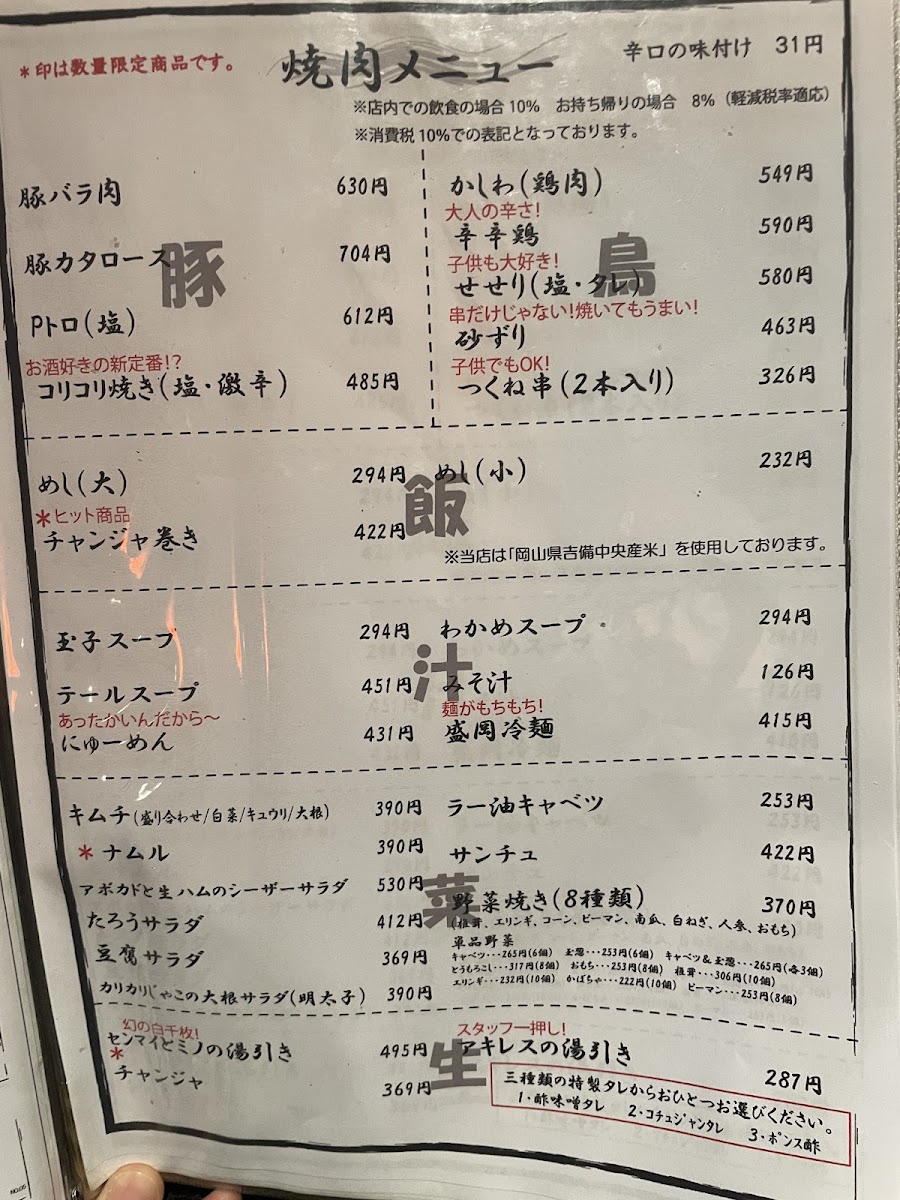 *印は数量限定商品です。
焼肉メニュー
辛口の味付け 31円
※店内での飲食の場合10% お持ち帰りの場合 8%(軽減税率適応)
※消費税10%での表記となっております。
豚
豚バラ肉 630円
豚カタロース 704円
Pトロ(塩) 612円
お酒好きの新定番!?
コリコリ焼き(塩・激辛) 485円
鳥
かしわ(鶏肉) 549円
大人の辛さ!
辛辛鶏 590円
子供も大好き!
せせり(塩・タレ) 580円
串だけじゃない!焼いてもうまい!
砂ずり 463円
子供でもOK!
つくね串(2本入り) 326円
飯
めし(大) 294円
*ヒット商品
チャンジャ巻き 422円
めし(小) 232円
※当店は「岡山県吉備中央産米」を使用しております。
汁
玉子スープ 294円
テールスープ 451円
あったかいんだから〜
にゅーめん 431円
わかめスープ 294円
みそ汁 126円
麺がもちもち!
盛岡冷麺 415円
菜
キムチ(盛り合わせ/白菜/キュウリ/大根) 390円
*ナムル 390円
アボカドと生ハムのシーザーサラダ 530円
たろうサラダ 412円
豆腐サラダ 369円
カリカリじゃこの大根サラダ(明太子) 390円
ラー油キャベツ 253円
サンチュ 422円
野菜焼き(8種類) 370円
(椎茸、エリンギ、コーン、ピーマン、南瓜、白ねぎ、人参、おもち)
単品野菜
キャベツ・・・265円(6個) 玉葱・・・253円(6個) キャベツ&玉葱・・・265円(各3個)
とうもろこし・・・317円(8個) おもち・・・253円(8個) 椎茸・・・306円(10個)
エリンギ・・・232円(10個) かぼちゃ・・・222円(10個) ピーマン・・・253円(8個)
生
幻の白千枚!
センマイとミノの湯引き 495円
*
チャンジャ 369円
スタッフ一押し!
アキレスの湯引き 287円
三種類の特製タレからおひとつお選びください。
1・酢味噌タレ 2・コチュジャンタレ 3・ポンズ酢